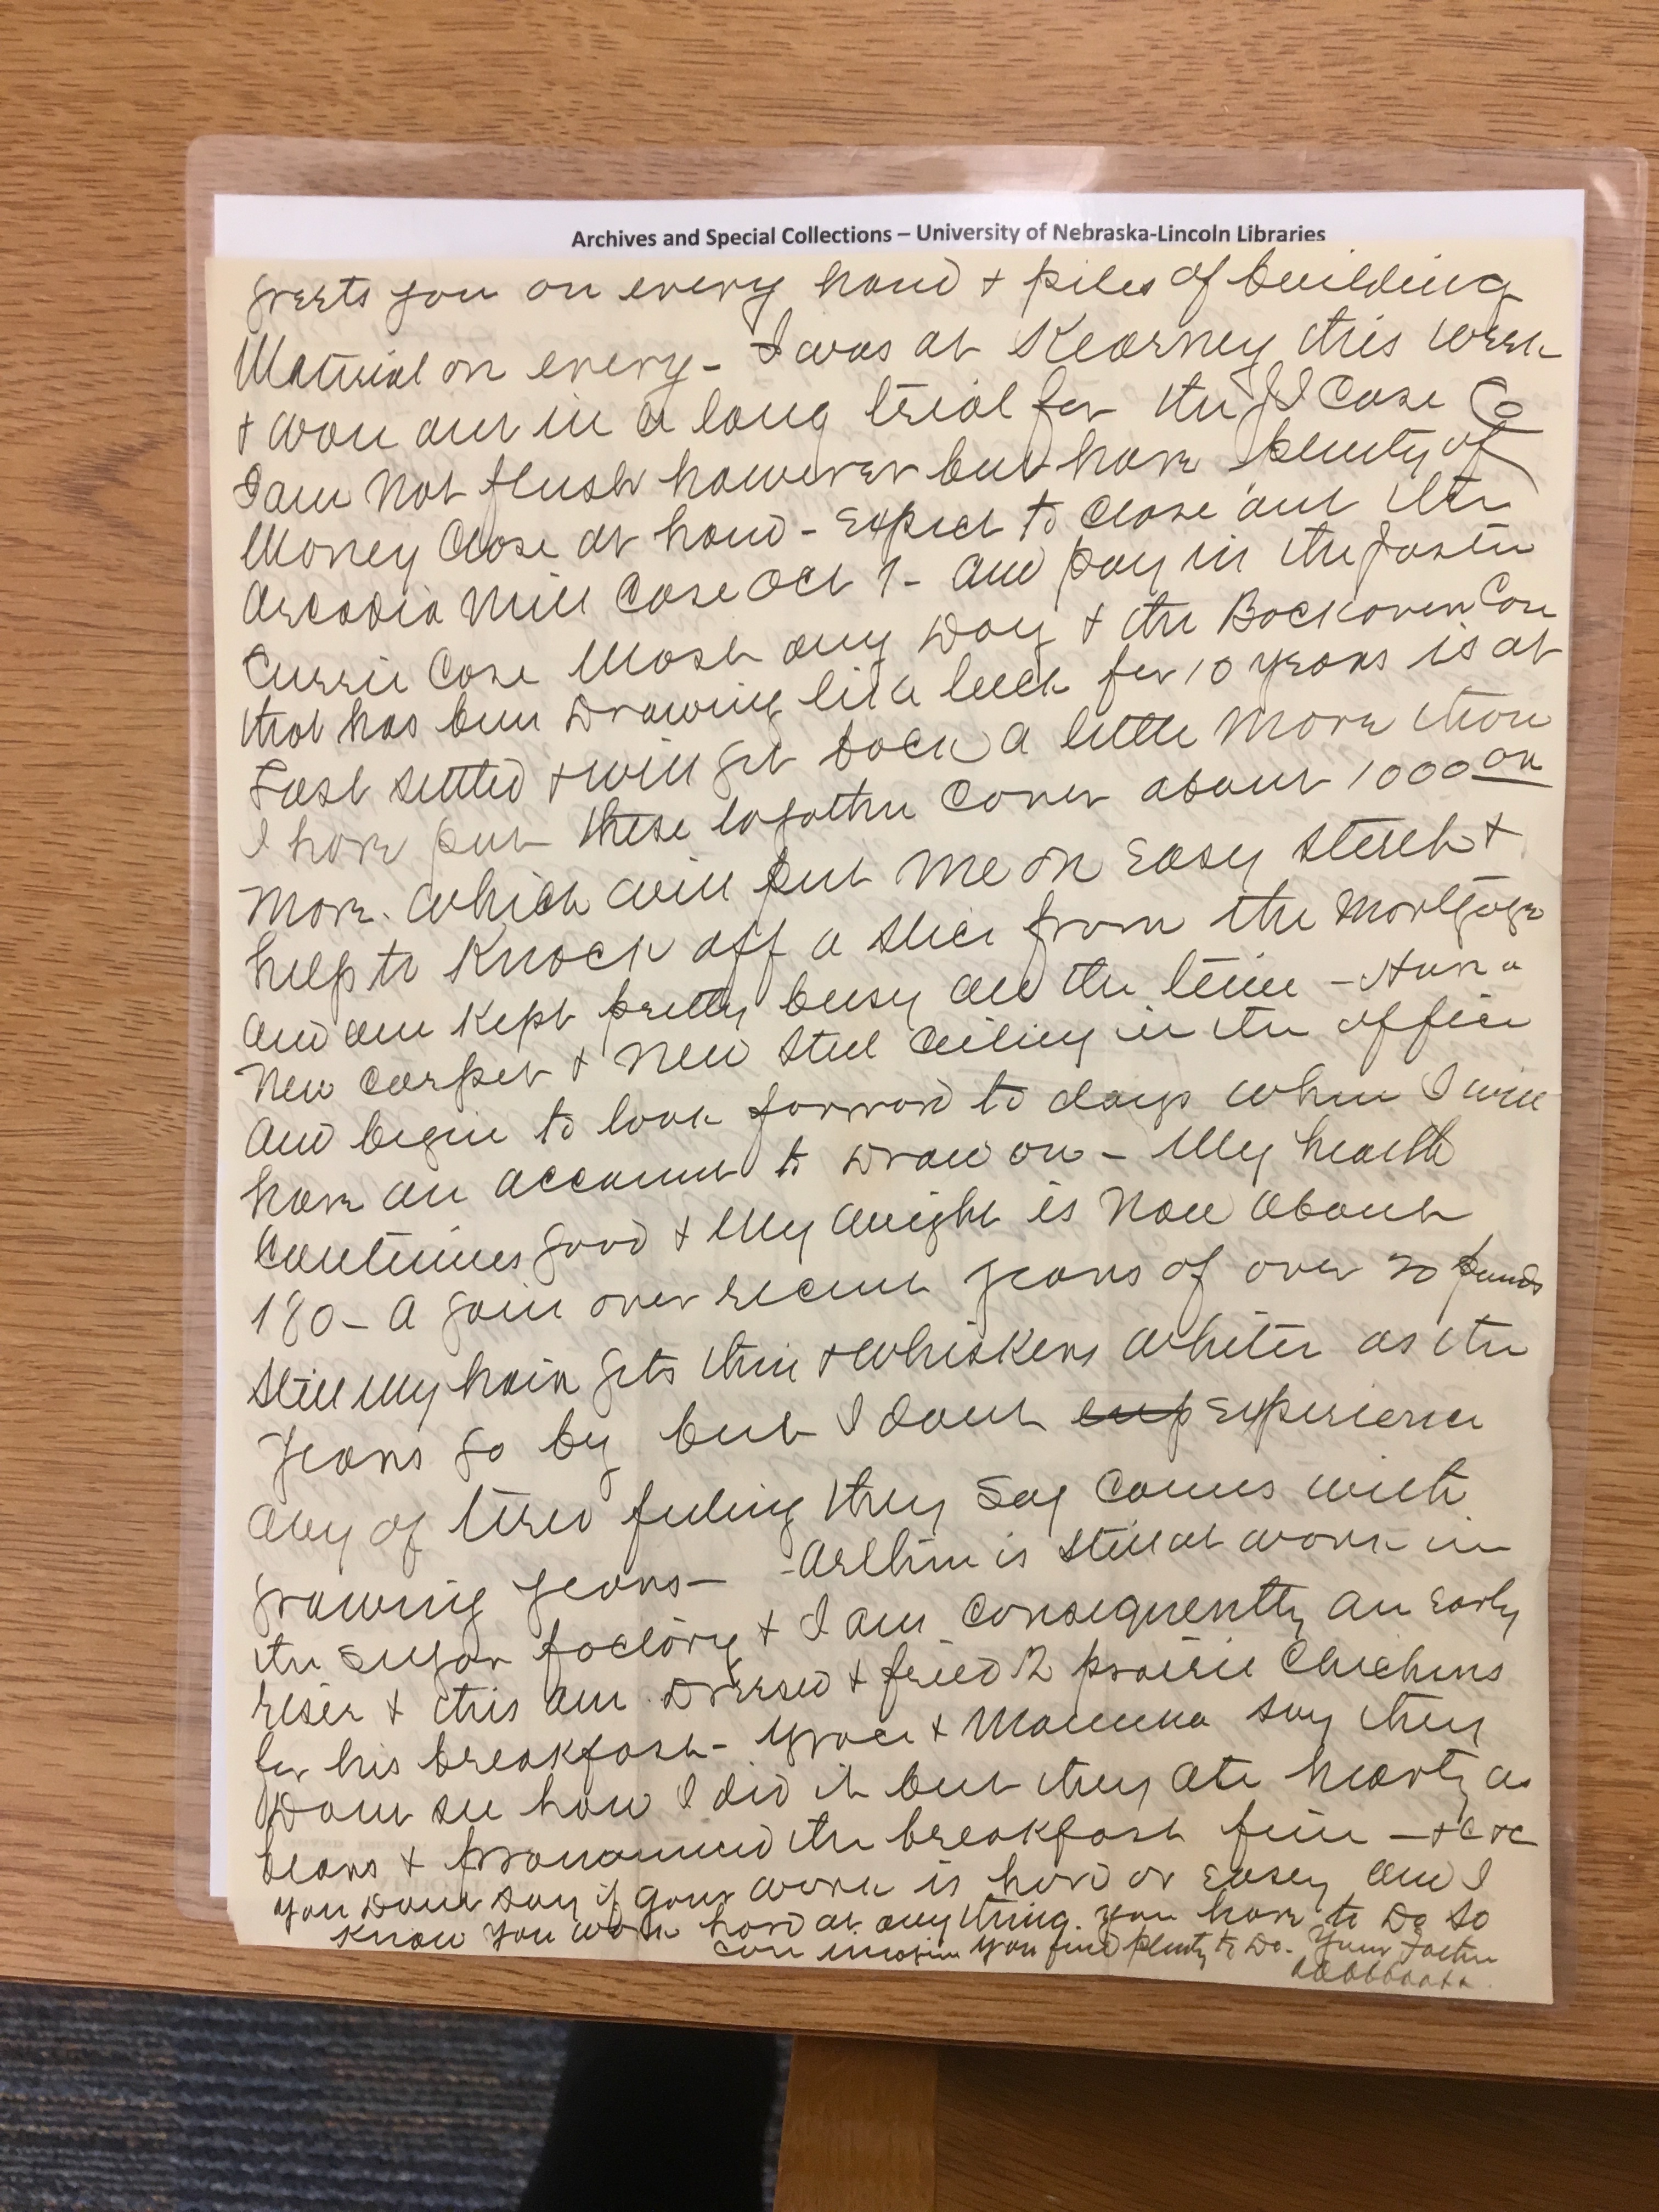 Archives and Special Collections – University of Nebraska-Lincoln Libraries
greets you on every hand + piles of building
Material on every – I was at Kearney this week
+ won out in a long trial for the J I Case Co
I am not flush however but have plenty of
Money Close at hand – expect to close out the
Arcadia Mill Case Oct 1 – and pay in the
Currie Case Most any Day + the Bockoven Case
that has been Drawing like a leech for 10 years is at
Last settled + will get back a little More than
I have put these together Cover about 1000 00
More. which will put Me on Easy street +
help to Knock off a slice from the Mortgage
and am Kept pretty busy all the time – Have a
New Carpet + New steel Ceiling in the office
and begin to look forward to days when I will
have an account to Draw on – My health
Continues good + My weight is Now about
180 – A gain over recent years of over 20 punds
still My hair gets thin + whiskers whiter as the
years go by but I dont exp Experience
any of tired feeling they say Comes with
growing years – is still at work in
the sugar factory + I am Consequently an Early
riser + this am Dressed + fried 2 prairie Chickens
for his breakfast – Grace + Mamma say they
Dont see how I did it but they ate hearty as
bears + pronounced the breakfast fine – + c + c
you Dont say if your work is hard or Easy and I
Know you work hard at anything you have to Do so
can imagine you find plenty to Do. Your Father